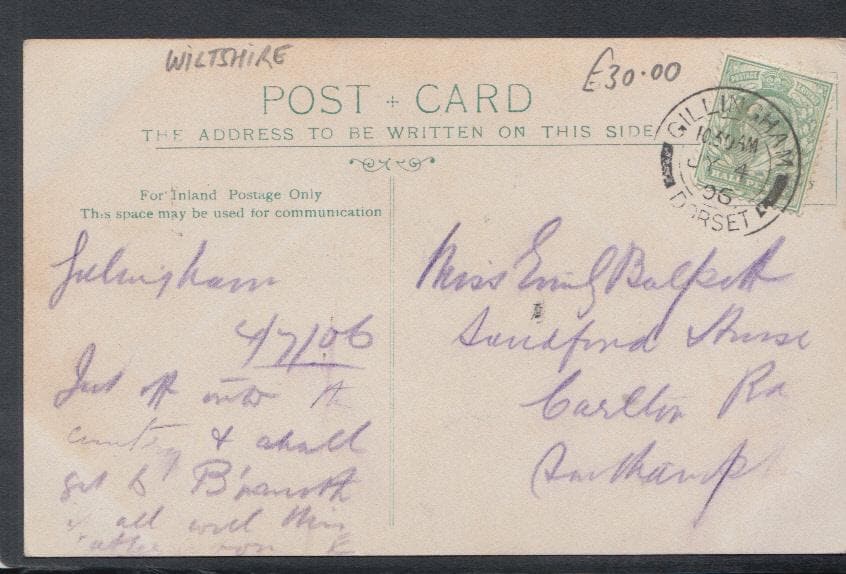 WILTSHIRE
£30.00
POST CARD
THE ADDRESS TO BE WRITTEN ON THIS SIDE
POSTAGE
HALF PENNY
GILLINGHAM
10.30AM
JY 4
06
DORSET
For Inland Postage Only
This space may be used for communication
Gillingham
4/7/06
Just off into the
country & shall
get to B'mouth
all well this
Miss Emily
Sandford House
Carlton Rd
Southampt